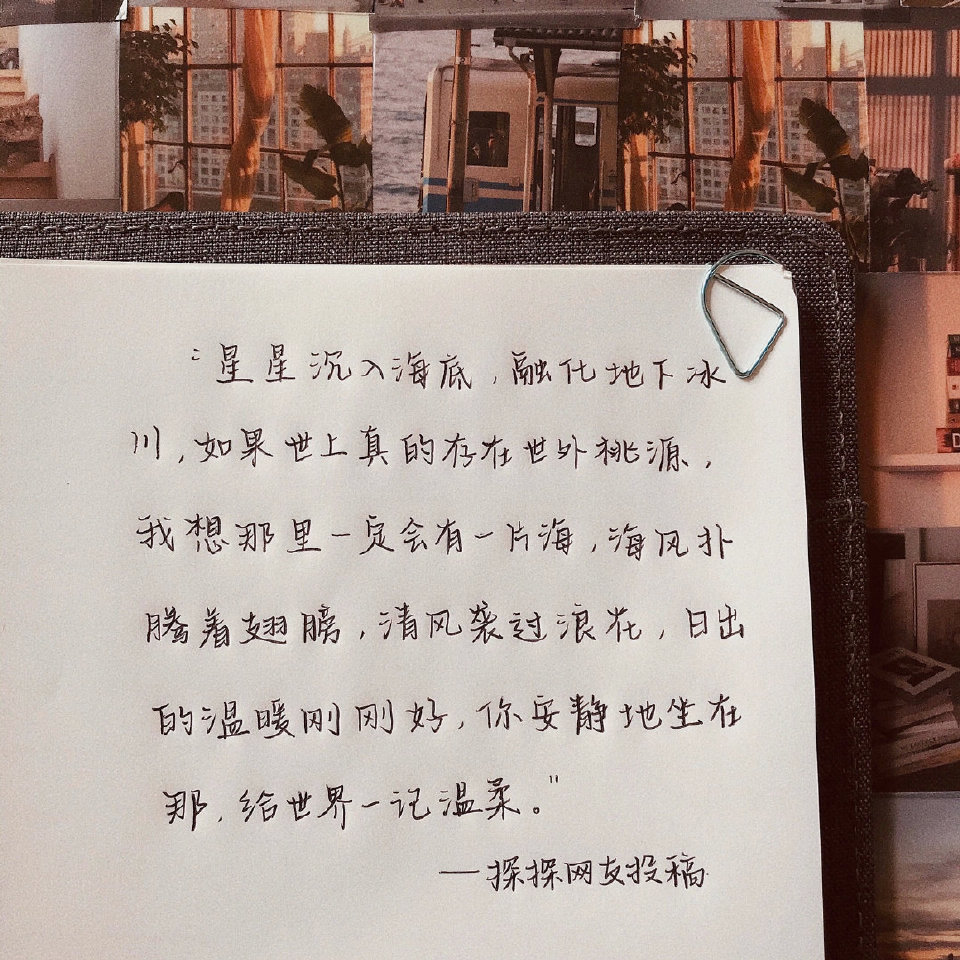 “星星沉入海底,融化地下冰
川,如果世上真的存在世外桃源,
我想那里一定会有一片海,海风扑
腾着翅膀,清风袭过浪花,日出
的温暖刚刚好,你安静地坐在
那,给世界一记温柔。”
—探探网友投稿